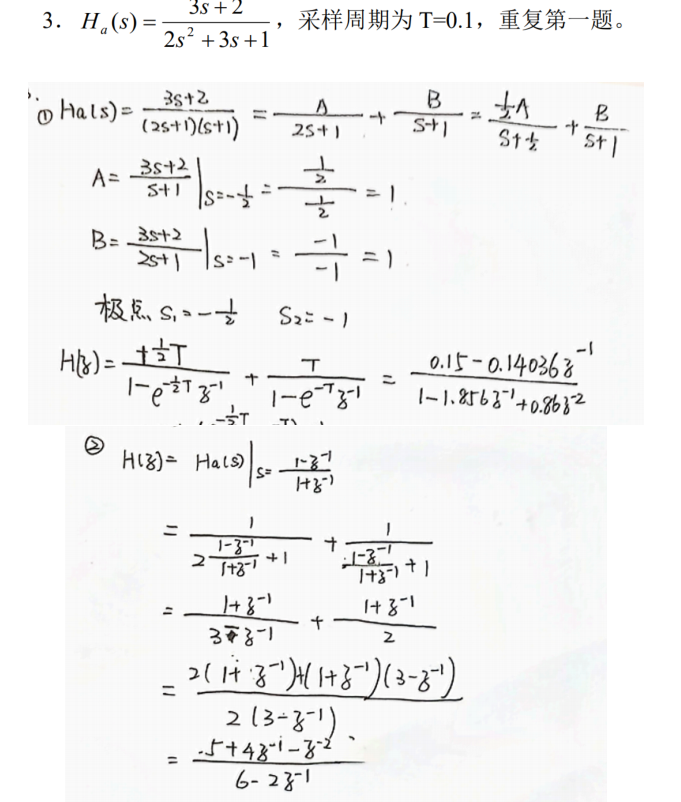 3． Ha(s) = (3s + 2)/(2s² + 3s + 1)，采样周期为 T=0.1，重复第一题。
① Ha(s) = (3s+2)/((2s+1)(s+1)) = A/(2s+1) + B/(s+1) = (½A)/(s+½) + B/(s+1)
A = (3s+2)/(s+1) |s=-½ = (½)/(½) = 1.
B = (3s+2)/(2s+1) |s=-1 = (-1)/(-1) = 1
极点 s₁ = -½ s₂ = -1
H(z) = (+½T)/(1-e^(-½T) z⁻¹) + T/(1-e^(-T) z⁻¹) = (0.15-0.14036z⁻¹)/(1-1.856z⁻¹+0.86z⁻²)
②
H(z) = Ha(s) |s=(1-z⁻¹)/(1+z⁻¹)
= 1/(2 (1-z⁻¹)/(1+z⁻¹) +1) + 1/((1-z⁻¹)/(1+z⁻¹) +1)
= (1+z⁻¹)/(3-z⁻¹) + (1+z⁻¹)/2
= (2(1+z⁻¹)+(1+z⁻¹)(3-z⁻¹))/(2(3-z⁻¹))
= (5+4z⁻¹-z⁻²)/(6-2z⁻¹)